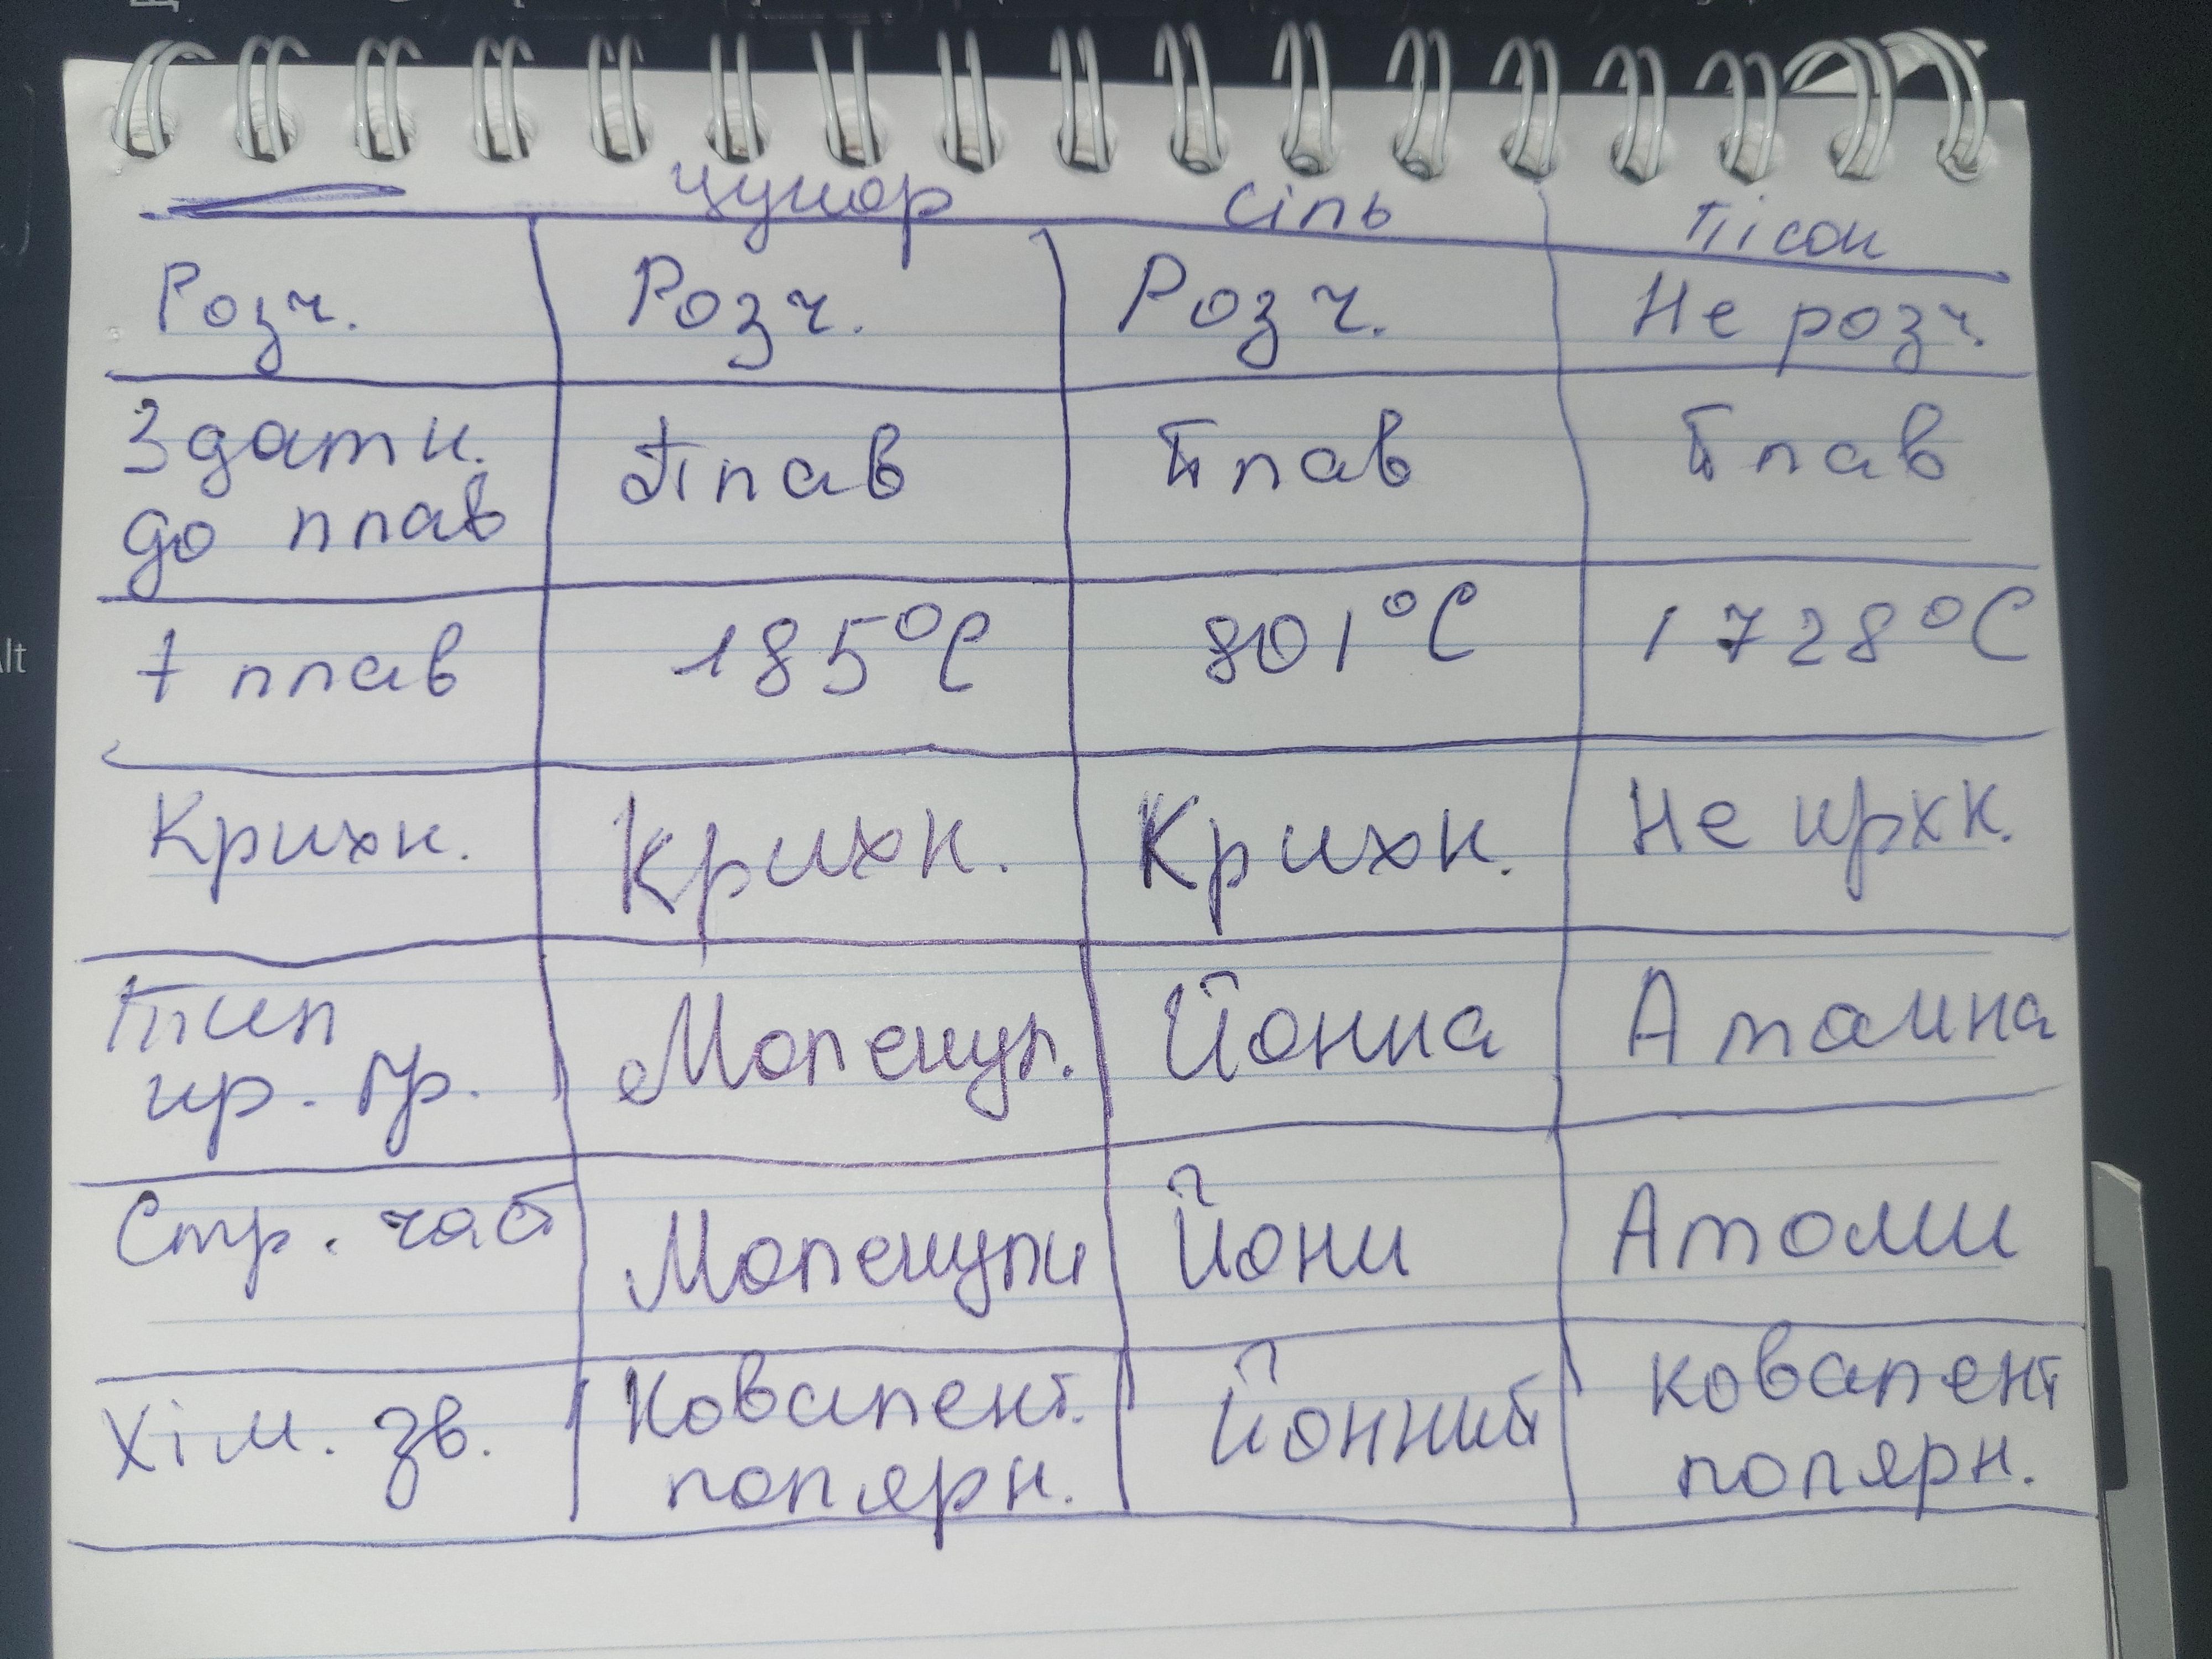 цукор сіль пісок
Розч. Розч. Розч. Не розч.
Здатн. Плав Плав Плав
до плав
t плав 185°C 801°C 1728°C
Крихк. Крихк. Крихк. Не крхк.
Тип Молекул. Йонна Атомна
кр. гр.
Стр. част Молекули Йони Атоми
Хім. зв. Ковалент. Йонний ковалент
полярн. полярн.